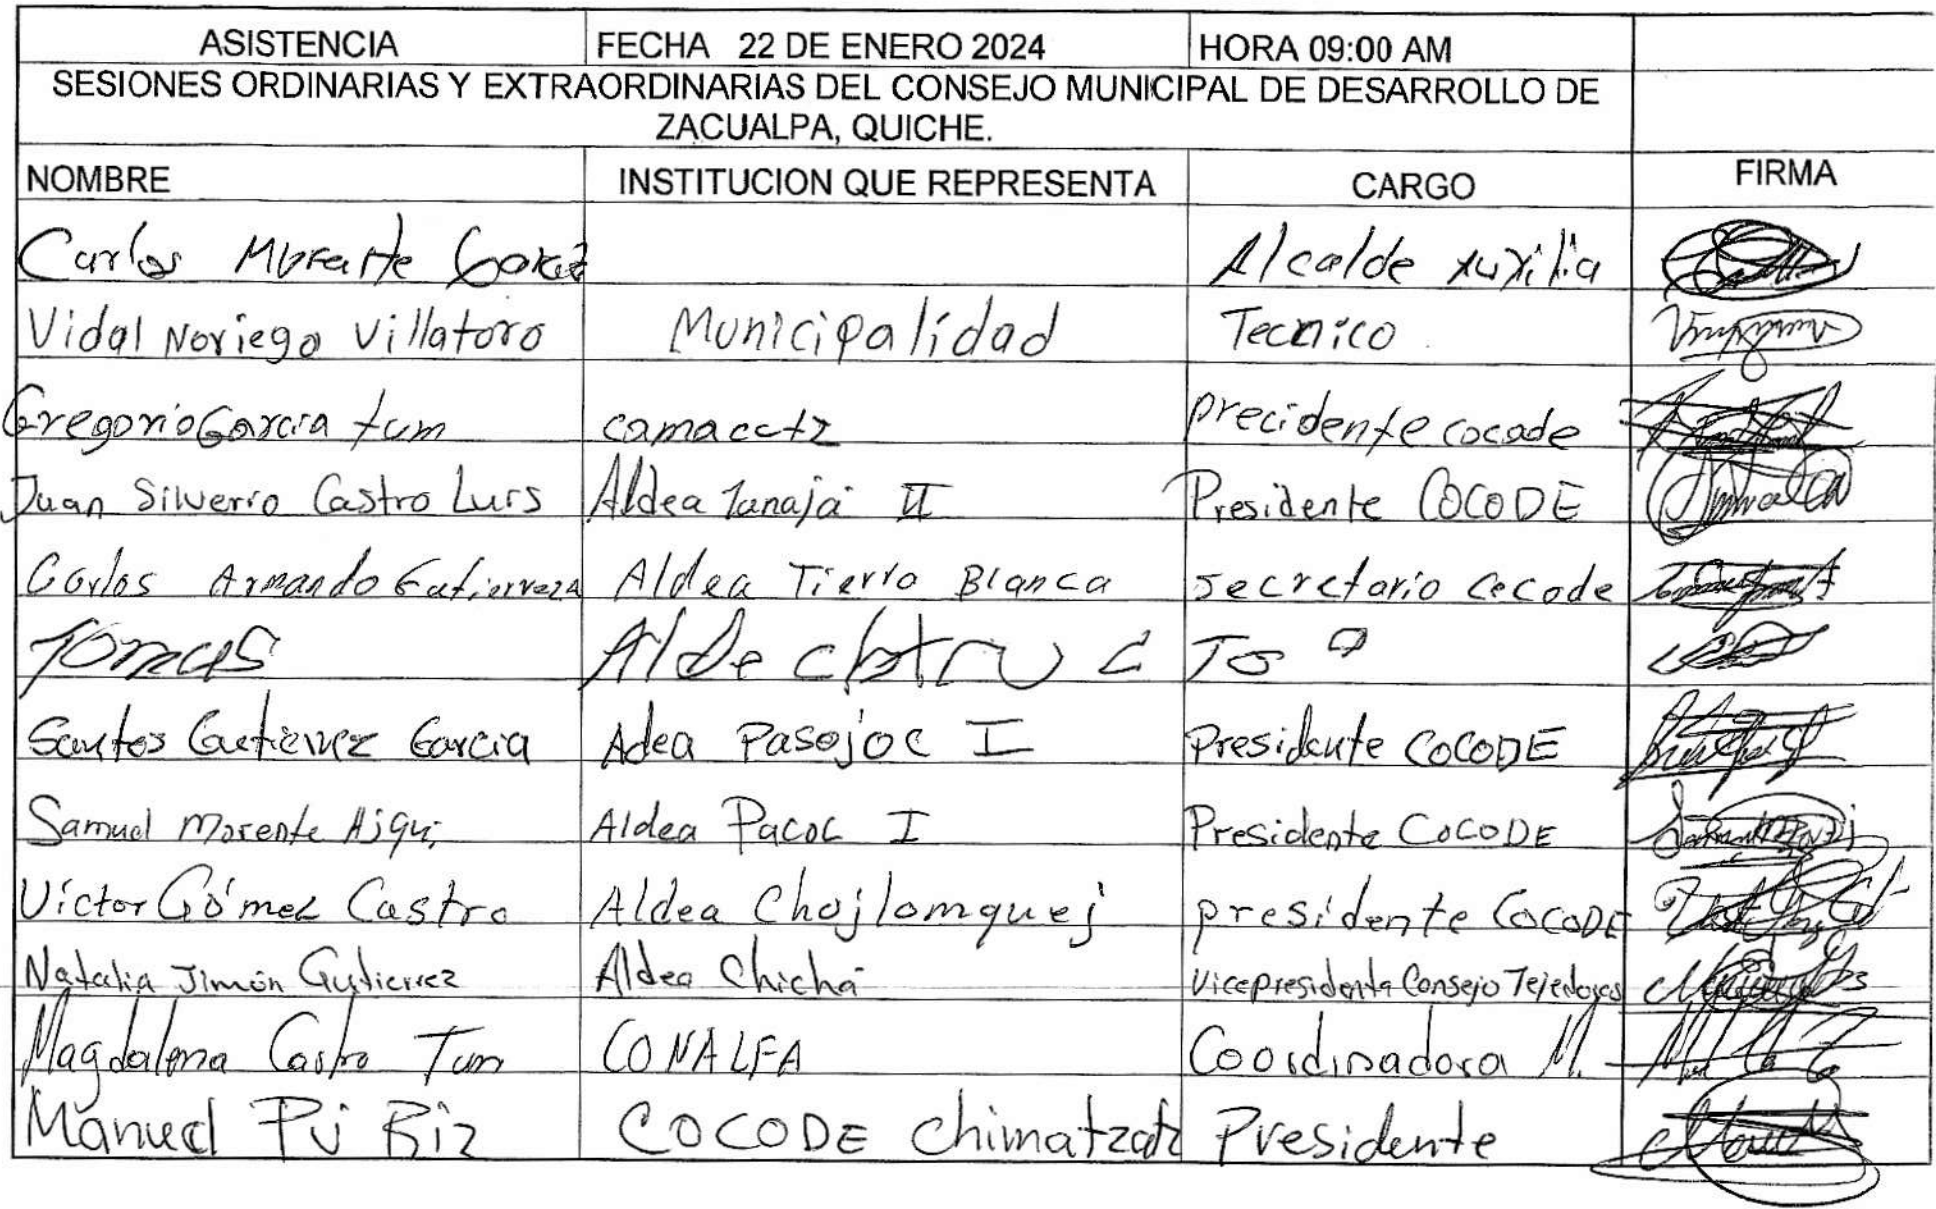 ASISTENCIA FECHA 22 DE ENERO 2024 HORA 09:00 AM
SESIONES ORDINARIAS Y EXTRAORDINARIAS DEL CONSEJO MUNICIPAL DE DESARROLLO DE
ZACUALPA, QUICHE.
NOMBRE INSTITUCION QUE REPRESENTA CARGO FIRMA
Carlos Morente Alcalde Auxilia
Vidal Noriega Villatoro Municipalidad Tecnico
Gregorio Garcia tum precidente cocade
Juan Silverio Castro Luis Aldea Tunajá II Presidente COCODE
Carlos Armando Aldea Tierra Blanca secretario cecode
Tomas Alde
Santos Gutierrez Garcia Adea Pasojoc I Presidente COCODE
Samuel Morente Ajqui Aldea Pacoc I Presidente COCODE
Victor Gómez Castro Aldea Chojlomquej presidente COCODE
Natalia Jimón Gutierrez Aldea Chichá Vicepresidenta Consejo Tejedoras
Magdalena Castro Tum CONALFA Coordinadora M.
Manuel Pú Riz COCODE Chimatzatz Presidente